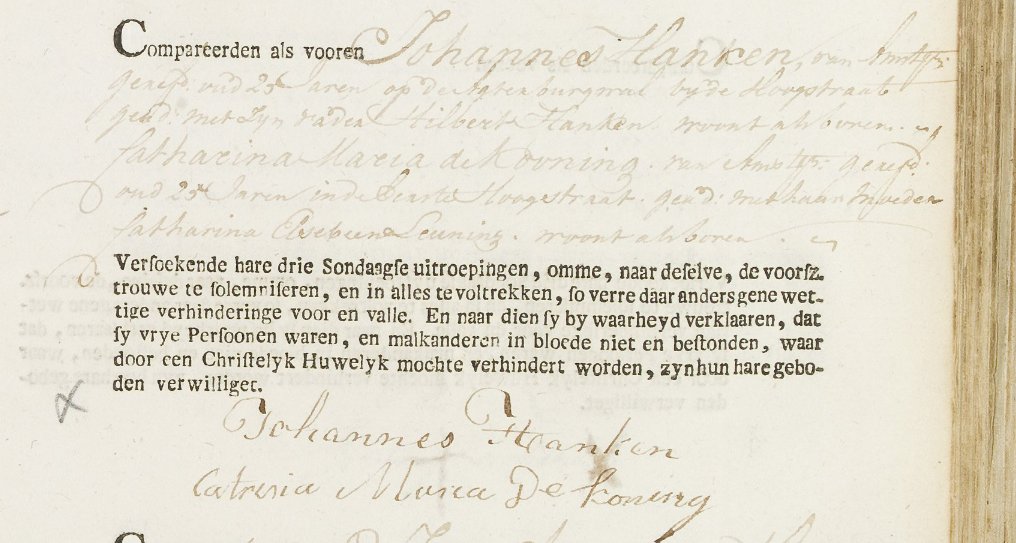 Compareerden als vooren Johannes Hanken, van Amst:
geref: oud 25 Jaren op de Agterburgwal by de Hoogstraat
gead: met Zyn vader Hilbert Hanken. woont als voren.
Catharina Maria de Kooning. van Amst: geref:
oud 25 Jaren in de Eerste Hoogstraat. gead: met haar Moeder
Catharina Elsebeen Leuning. woont als voren.
Versoekende hare drie Sondaagse uitroepingen, omme, naar deselve, de voorsz.
trouwe te solemniseren, en in alles te voltrekken, so verre daar anders gene wet-
tige verhinderinge voor en valle. En naar dien sy by waarheyd verklaaren, dat
sy vrye Persoonen waren, en malkanderen in bloede niet en bestonden, waar
door een Christelyk Huwelyk mochte verhindert worden, zyn hun hare gebo-
den verwilliget.
Johannes Hanken
Catresia Marea De koning